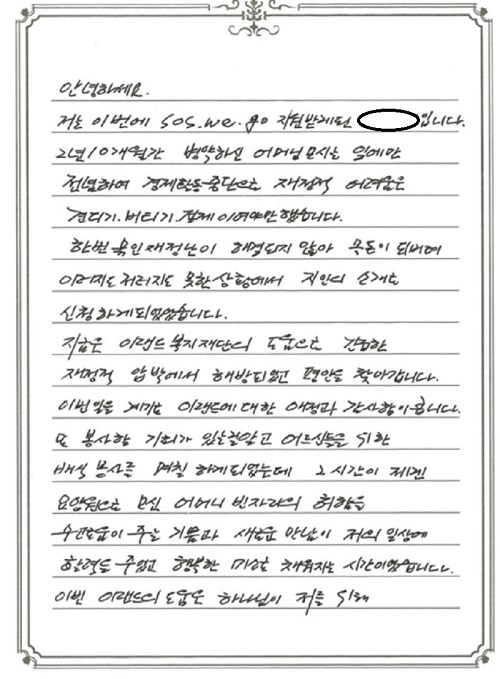 안녕하세요.
저는 이번에 SOS.we.go 지원받게된 입니다.
2년10개월간 병약하신 어머님 모시는 일에만
전념하여 경제활동중단으로 재정적 어려움은
견디기.버티기. 이어야만했습니다.
한번 묶인재정난이 해결되지 않아 목돈이 되버려
이러지도저러지도 못한상황에서 지인의 소개로
신청하게되었었습니다.
지금은 이랜드복지재단의 도움으로 간급한
재정적 압박에서 해방되었고 편안을 찾아갑니다.
이번일을 계기로 이랜드에대한 애정과 감사함이큽니다.
또 봉사할 기회가 있는걸알고 어르신들을 위한
배식 봉사를 며칠 하게되었는데 2시간이 제겐
요양원으로 모신 어머니 빈자리의 허함을
수고로움이 주는 기쁨과 새로운 만남이 저의 일상에
활력을 주었고 행복한 미소로 채워지는 시간이었습니다.
이번 이랜드의도움은 하나님이 저를 위해